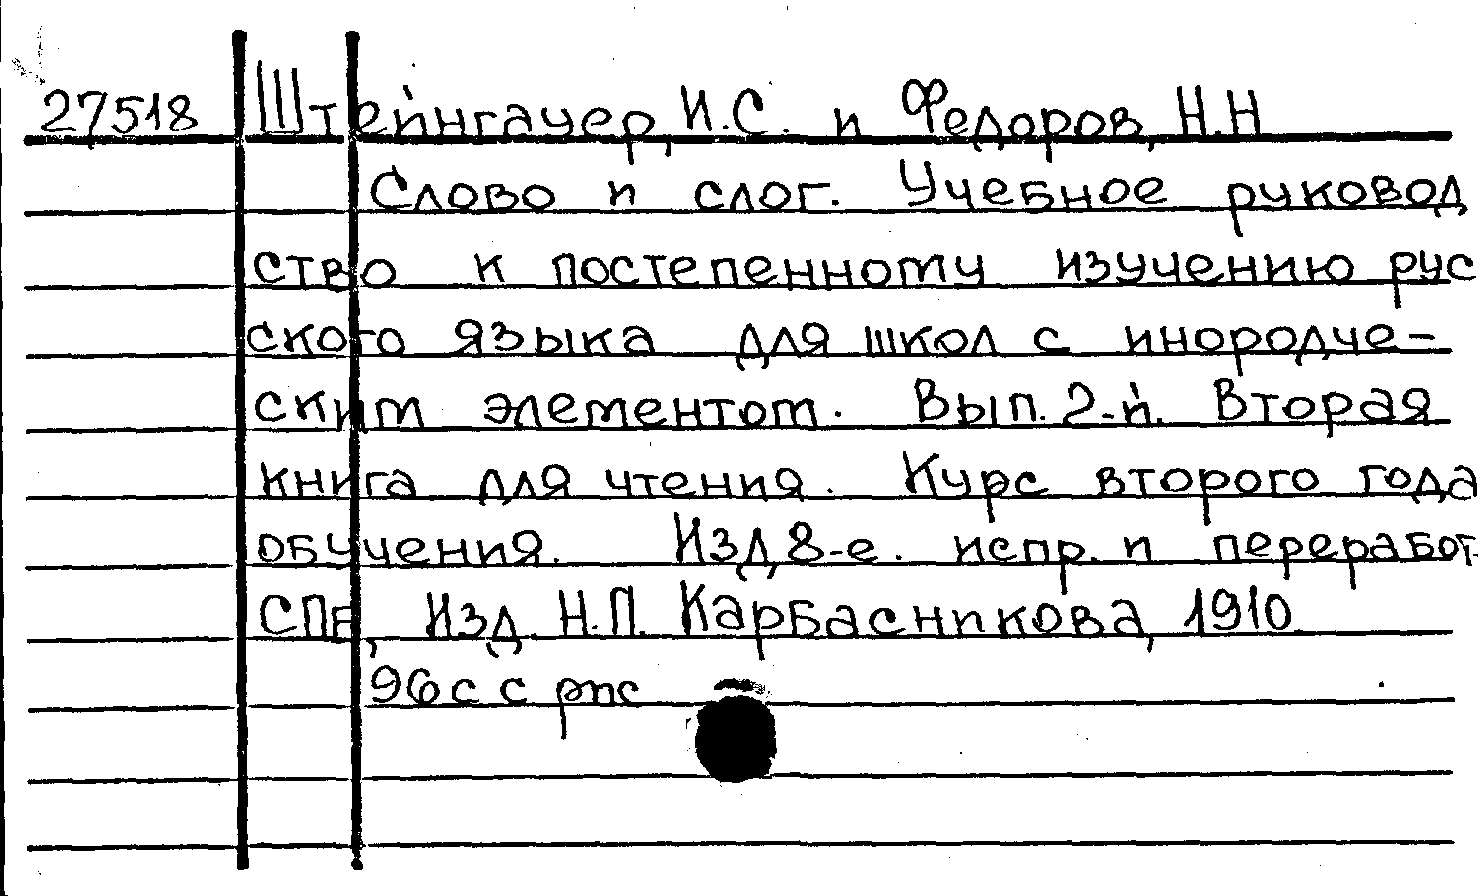 27518 Штейнгауер, И.С. и Федоров, Н.Н
Слово и слог. Учебное руковод
ство к постепенному изучению рус
ского языка для школ с инородче-
ским элементом. Вып. 2-й. Вторая
книга для чтения. Курс второго года
обучения. Изд, 8-е. испр. и переработ.
СПБ, Изд. Н.П. Карбасникова, 1910
96 с с рис